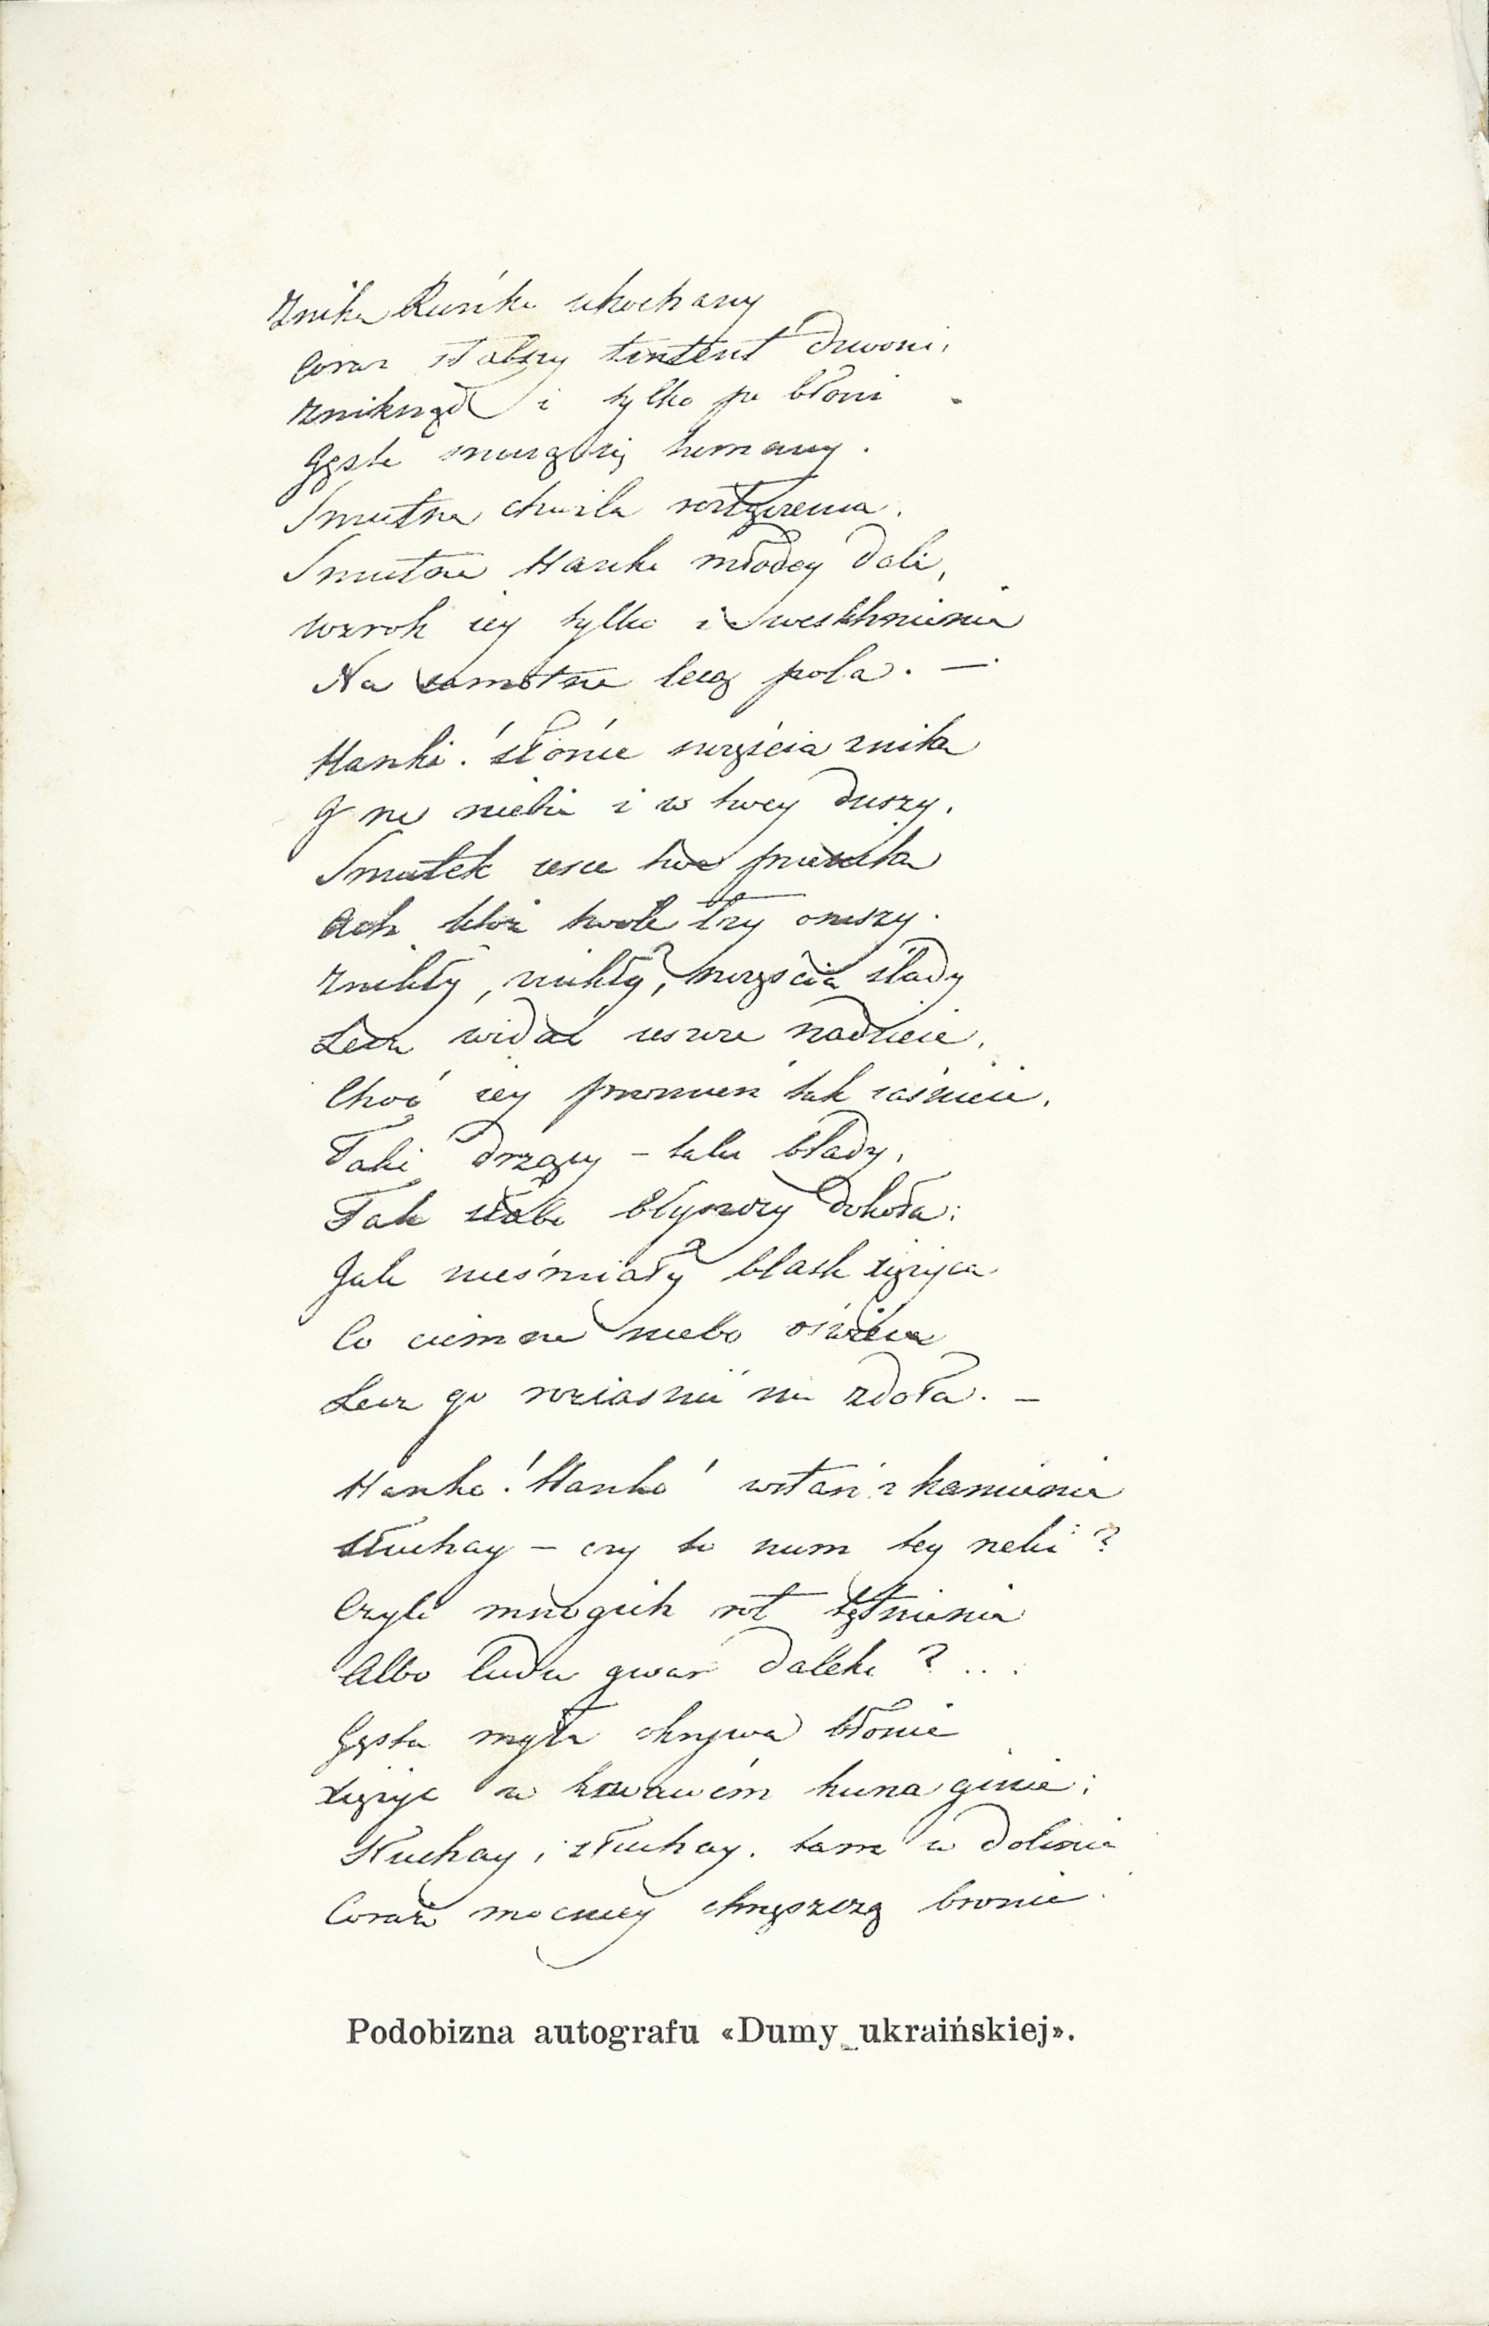 Znika Ruńko ukochany
Coraz słabszy tentent dzwoni,
Zniknął i tylko po błoni
Gęste snuią się tumany.
Smutna chwila roztączenia.
Smutna Hanko młodey doli,
Wzrok iey tylko i westchnienia
Na samotne lecą pola. —
Hanko! słońce szczęścia znika
I na niebie i w twey duszy,
Smutek serce twe przenika
Ach któż twoie łzy osuszy.
Znikły, znikły, szczęścia ślady
Lecz widać ieszcze nadzieie,
Choć iey promień tak iaśnieie,
Taki drżący – taki blady,
Tak słabo błyszczy dokoła:
Jak nieśmiały blask xiężyca
Co ciemne niebo oświéca
Lecz go roziaśnić nie zdoła. —
Hanko! Hanko! wstań z kamienia
Słuchay – czy to szum tey rzeki?
Czyli mnogich rot tętnienia
Albo ludu gwar daleki? ...
Gęsta mgła okrywa błonie
Xiężyc w krwawém łuna ginie;
Słuchay, słuchay, tam w dolinie
Coraz mocniey chrzęszczą bronie.
Podobizna autografu «Dumy ukraińskiej».